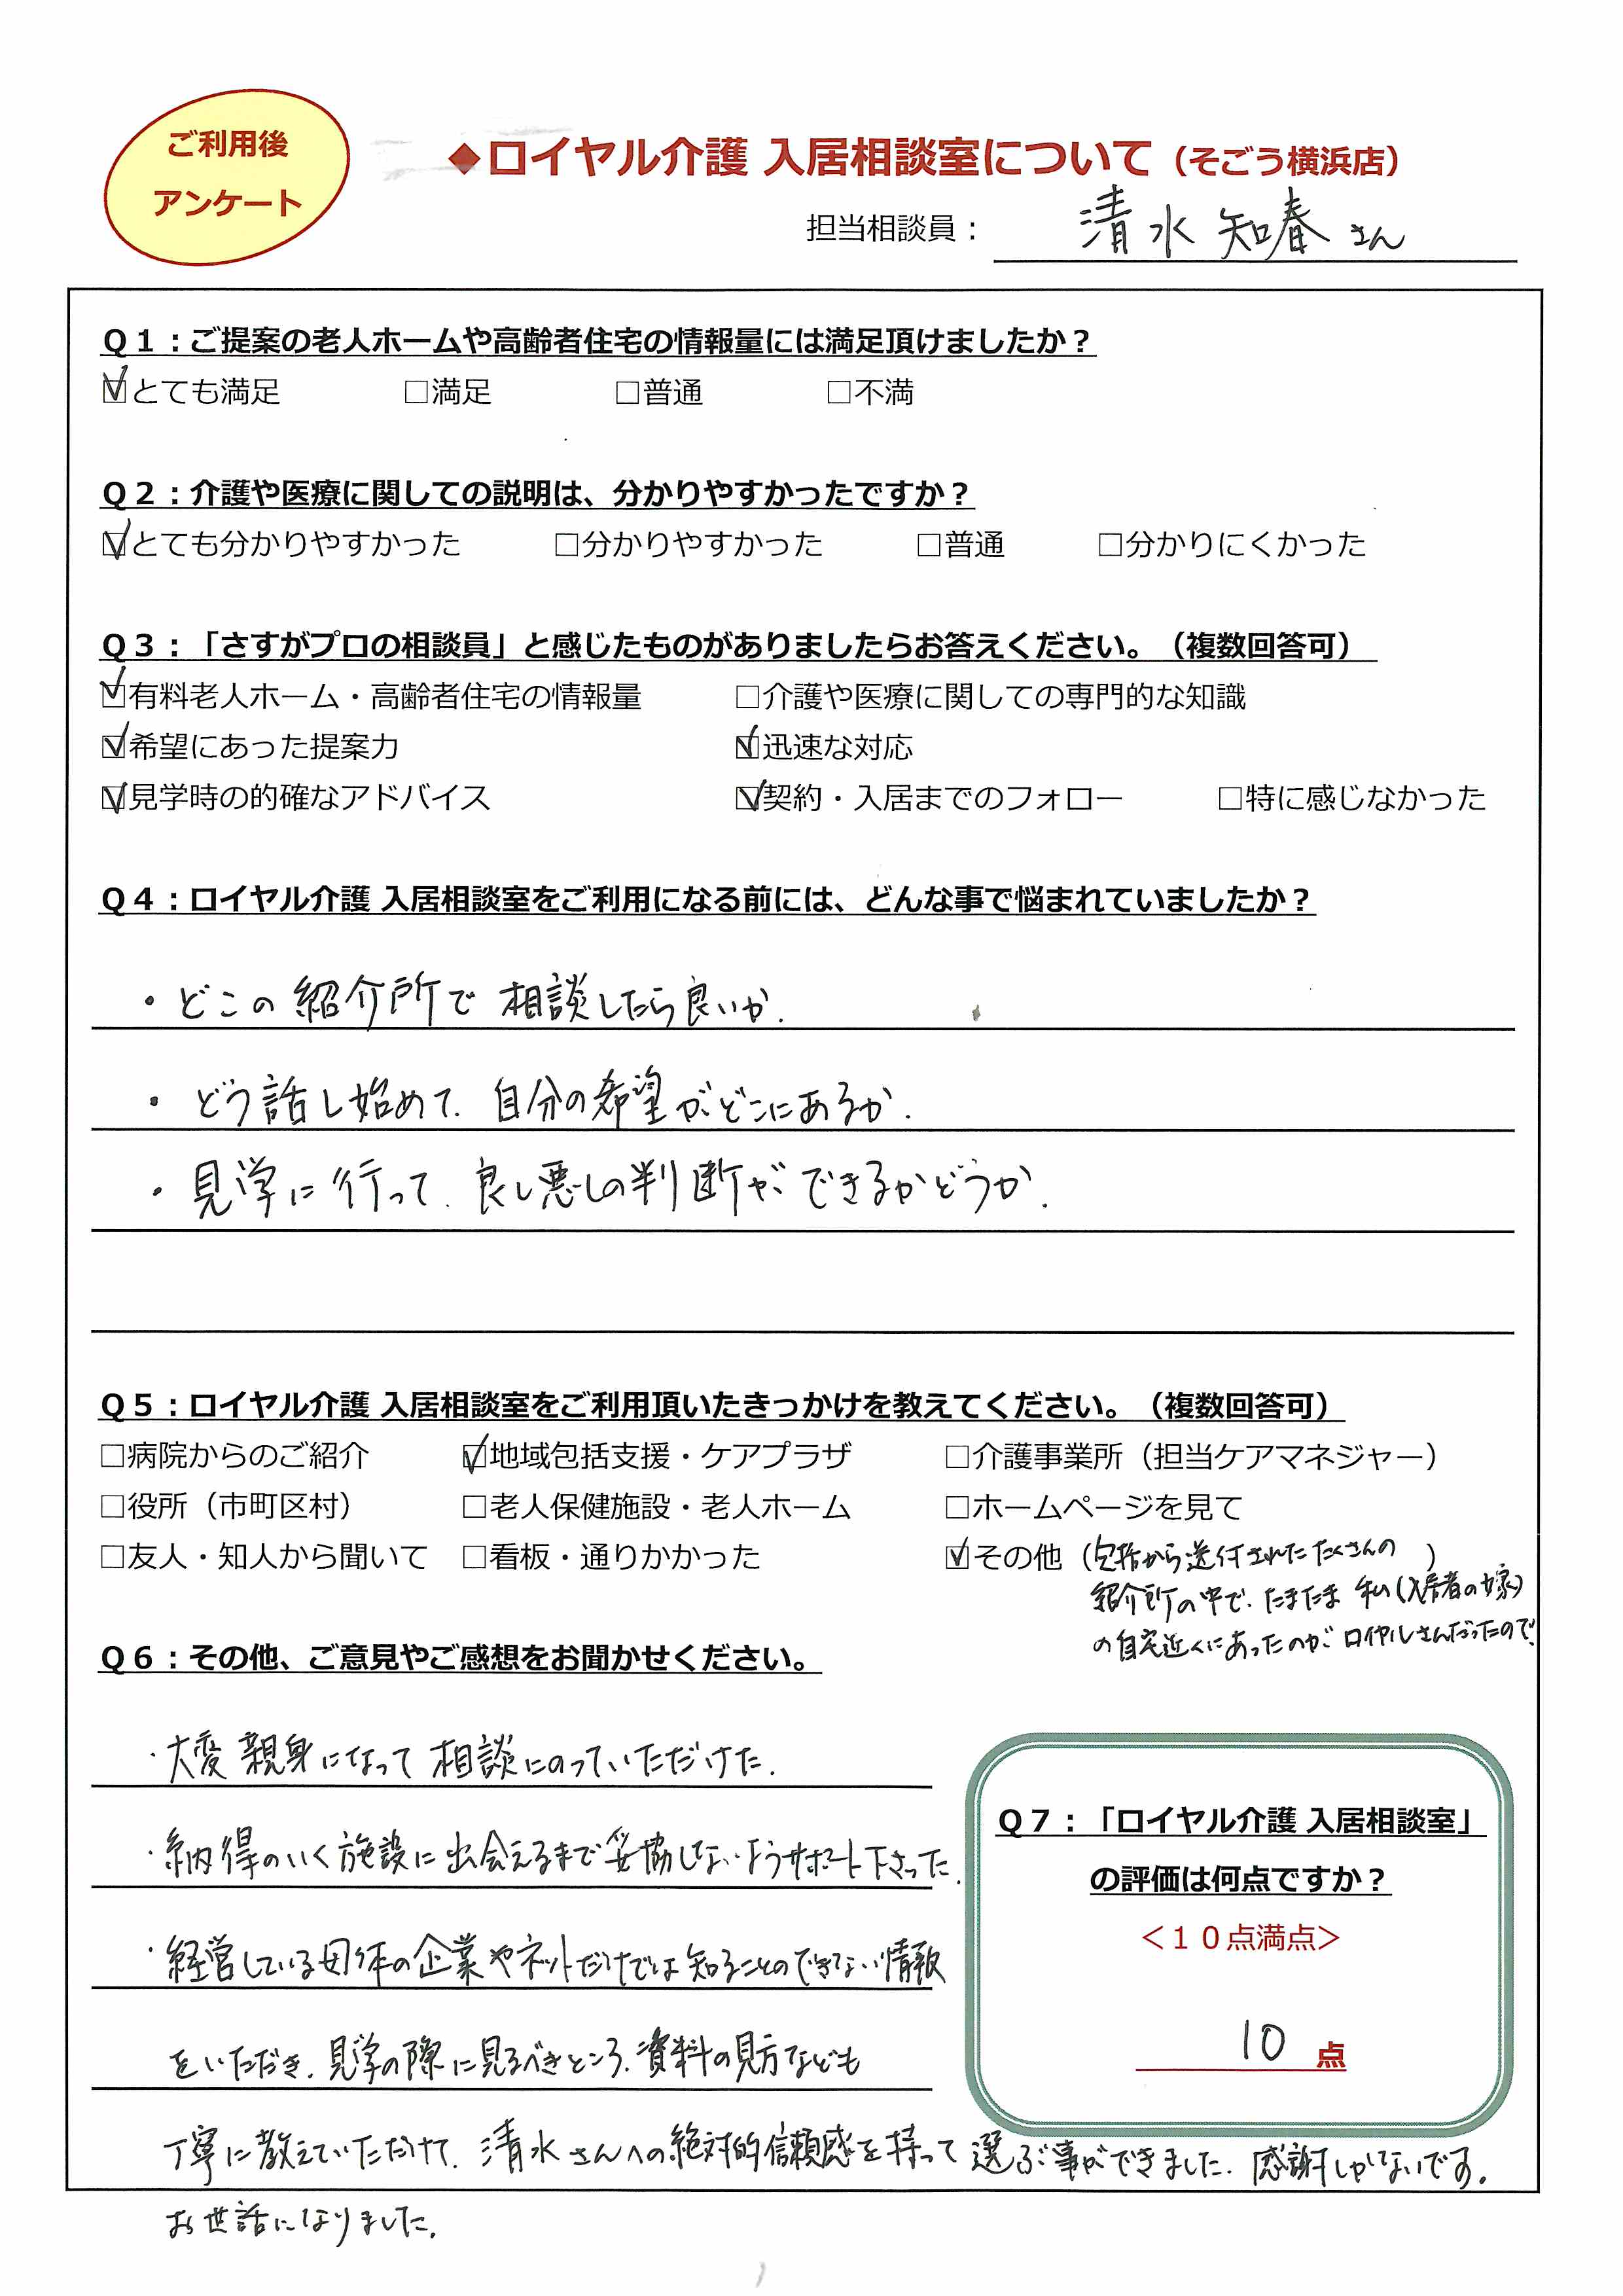 ご利用後
アンケート
◆ロイヤル介護 入居相談室について（そごう横浜店）
担当相談員： 清水 知春 さん
Q１：ご提案の老人ホームや高齢者住宅の情報量には満足頂けましたか？
☑とても満足 □満足 □普通 □不満
Q２：介護や医療に関しての説明は、分かりやすかったですか？
☑とても分かりやすかった □分かりやすかった □普通 □分かりにくかった
Q３：「さすがプロの相談員」と感じたものがありましたらお答えください。（複数回答可）
☑有料老人ホーム・高齢者住宅の情報量 □介護や医療に関しての専門的な知識
☑希望にあった提案力 ☑迅速な対応
☑見学時の的確なアドバイス ☑契約・入居までのフォロー □特に感じなかった
Q４：ロイヤル介護 入居相談室をご利用になる前には、どんな事で悩まれていましたか？
・どこの紹介所で相談したら良いか.
・どう話し始めて. 自分の希望がどこにあるか.
・見学に行って. 良し悪しの判断ができるかどうか.
Q５：ロイヤル介護 入居相談室をご利用頂いたきっかけを教えてください。（複数回答可）
□病院からのご紹介 ☑地域包括支援・ケアプラザ □介護事業所（担当ケアマネジャー）
□役所（市町区村） □老人保健施設・老人ホーム □ホームページを見て
□友人・知人から聞いて □看板・通りかかった ☑その他（包括から送付されたたくさんの ）
紹介所の中で. たまたま 私(入居者の嫁)
の自宅近くにあったのが ロイヤルさんだったので.
Q６：その他、ご意見やご感想をお聞かせください。
・大変親身になって相談にのっていただけた.
・納得のいく施設に出会えるまで妥協しないようサポート下さった.
・経営している母体の企業やネットだけでは知ることのできない情報
をいただき. 見学の際に見るべきところ. 資料の見方なども
丁寧に教えていただけて. 清水さんへの絶対的信頼感を持って選ぶ事ができました. 感謝しかないです。
お世話になりました.
Q７：「ロイヤル介護 入居相談室」
の評価は何点ですか？
＜１０点満点＞
10 点